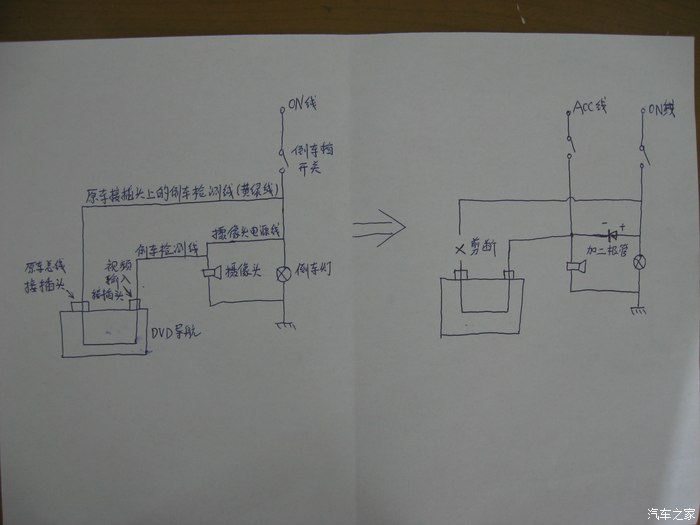 ON线
倒车档
开关
原车接插头上的倒车检测线(黄绿线)
摄像头电源线
倒车检测线
原车总线
接插头
视频
输入
接插头
摄像头
倒车灯
DVD导航
ACC线
ON线
剪断
- +
加二极管
汽车之家